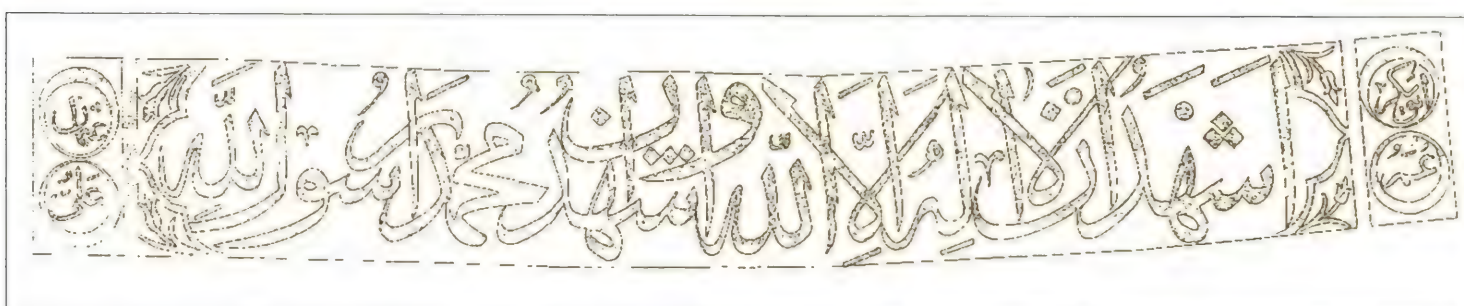 ابو بكر
عمر
اشهد ان لا اله الا الله واشهد ان محمدا رسول الله
عثمان
علي